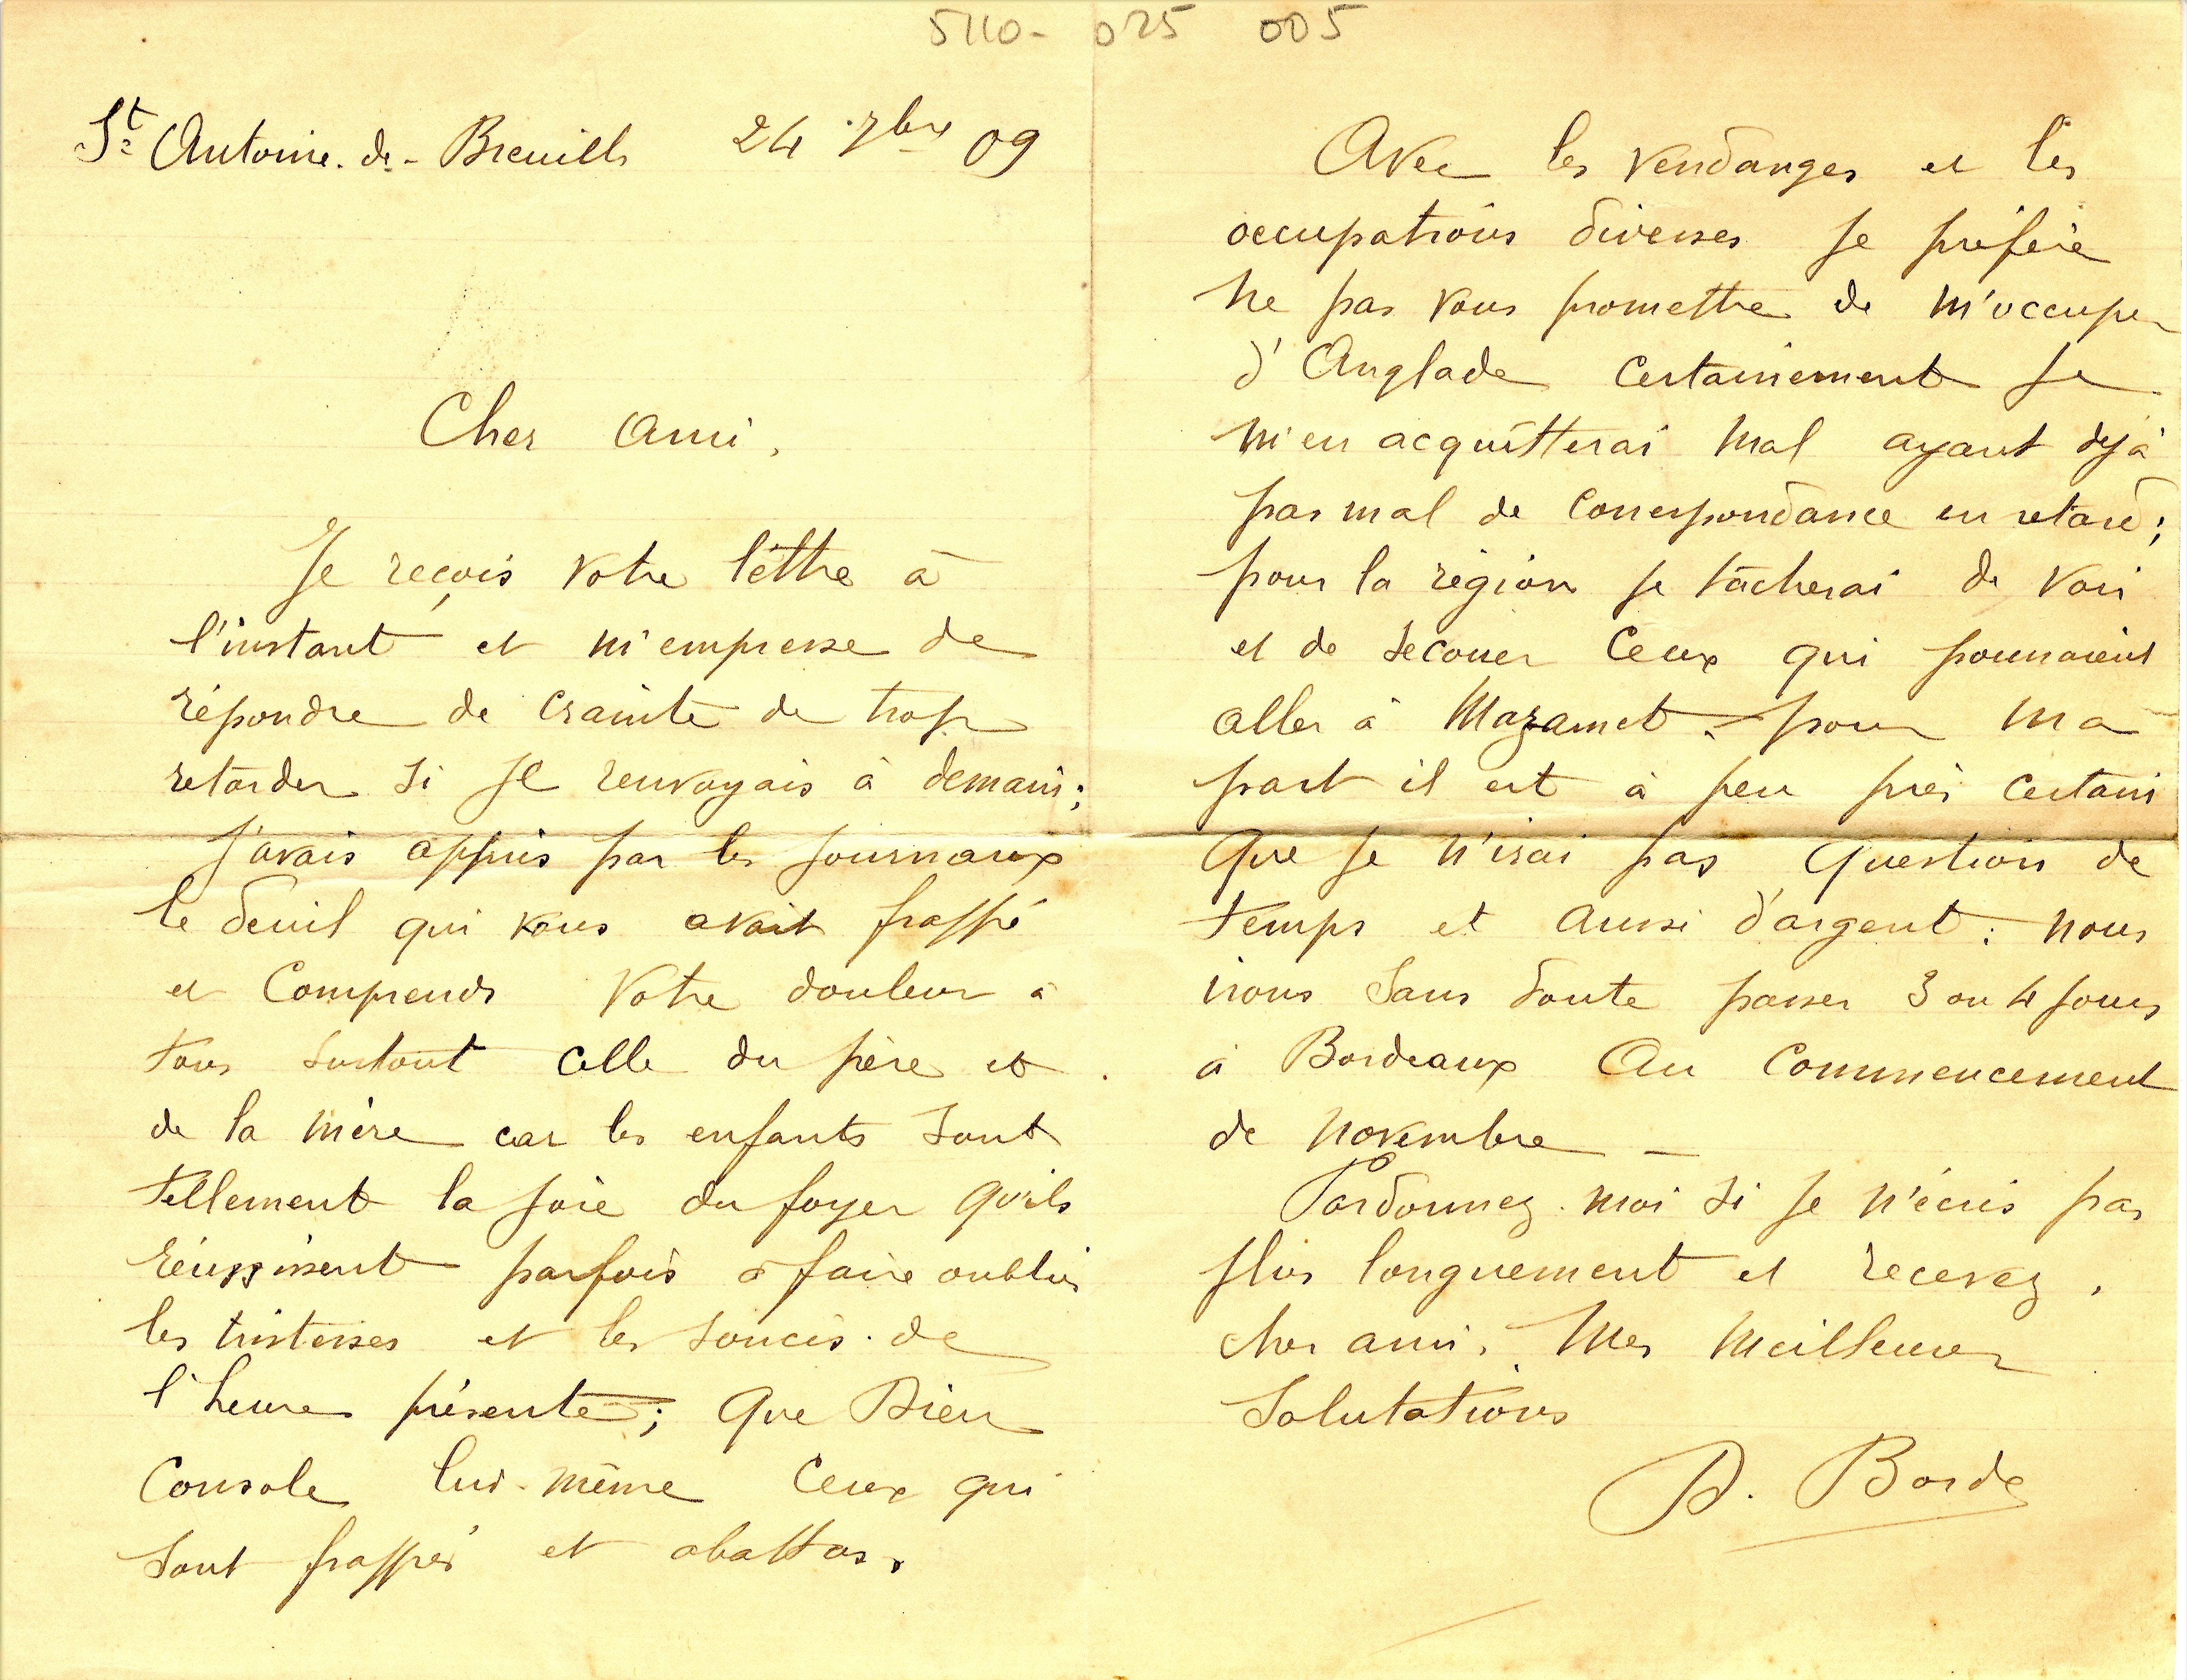 5110- 025 005
St Antoine-de-Breuilh 24 7bre 09
Cher ami,
Je reçois votre lettre à
l'instant et m'empresse de
répondre de crainte de trop
retarder si je renvoyais à demain;
j'avais appris par les journaux
le deuil qui vous avait frappé
et comprends votre douleur à
tous surtout celle du père et
de la mère car les enfants sont
tellement la joie du foyer qu'ils
réussissent parfois à faire oublier
les tristesses et les soucis de
l'heure présente; que Dieu
console lui-même ceux qui
sont frappés et abattus.
Avec les vendanges et les
occupations diverses je préfère
ne pas vous promettre de m'occuper
d'Anglade certainement je
m'en acquitterai mal ayant déjà
pas mal de correspondance en retard;
pour la région je tâcherai de voir
et de secouer ceux qui pourraient
aller à Mazamet. pour ma
part il est à peu près certain
que je n'irai pas question de
temps et aussi d'argent: nous
irons sans doute passer 3 ou 4 jours
à Bordeaux au commencement
de novembre —
Pardonnez-moi si je n'écris pas
plus longuement et recevez,
cher ami, mes meilleures
salutations
D. Borde